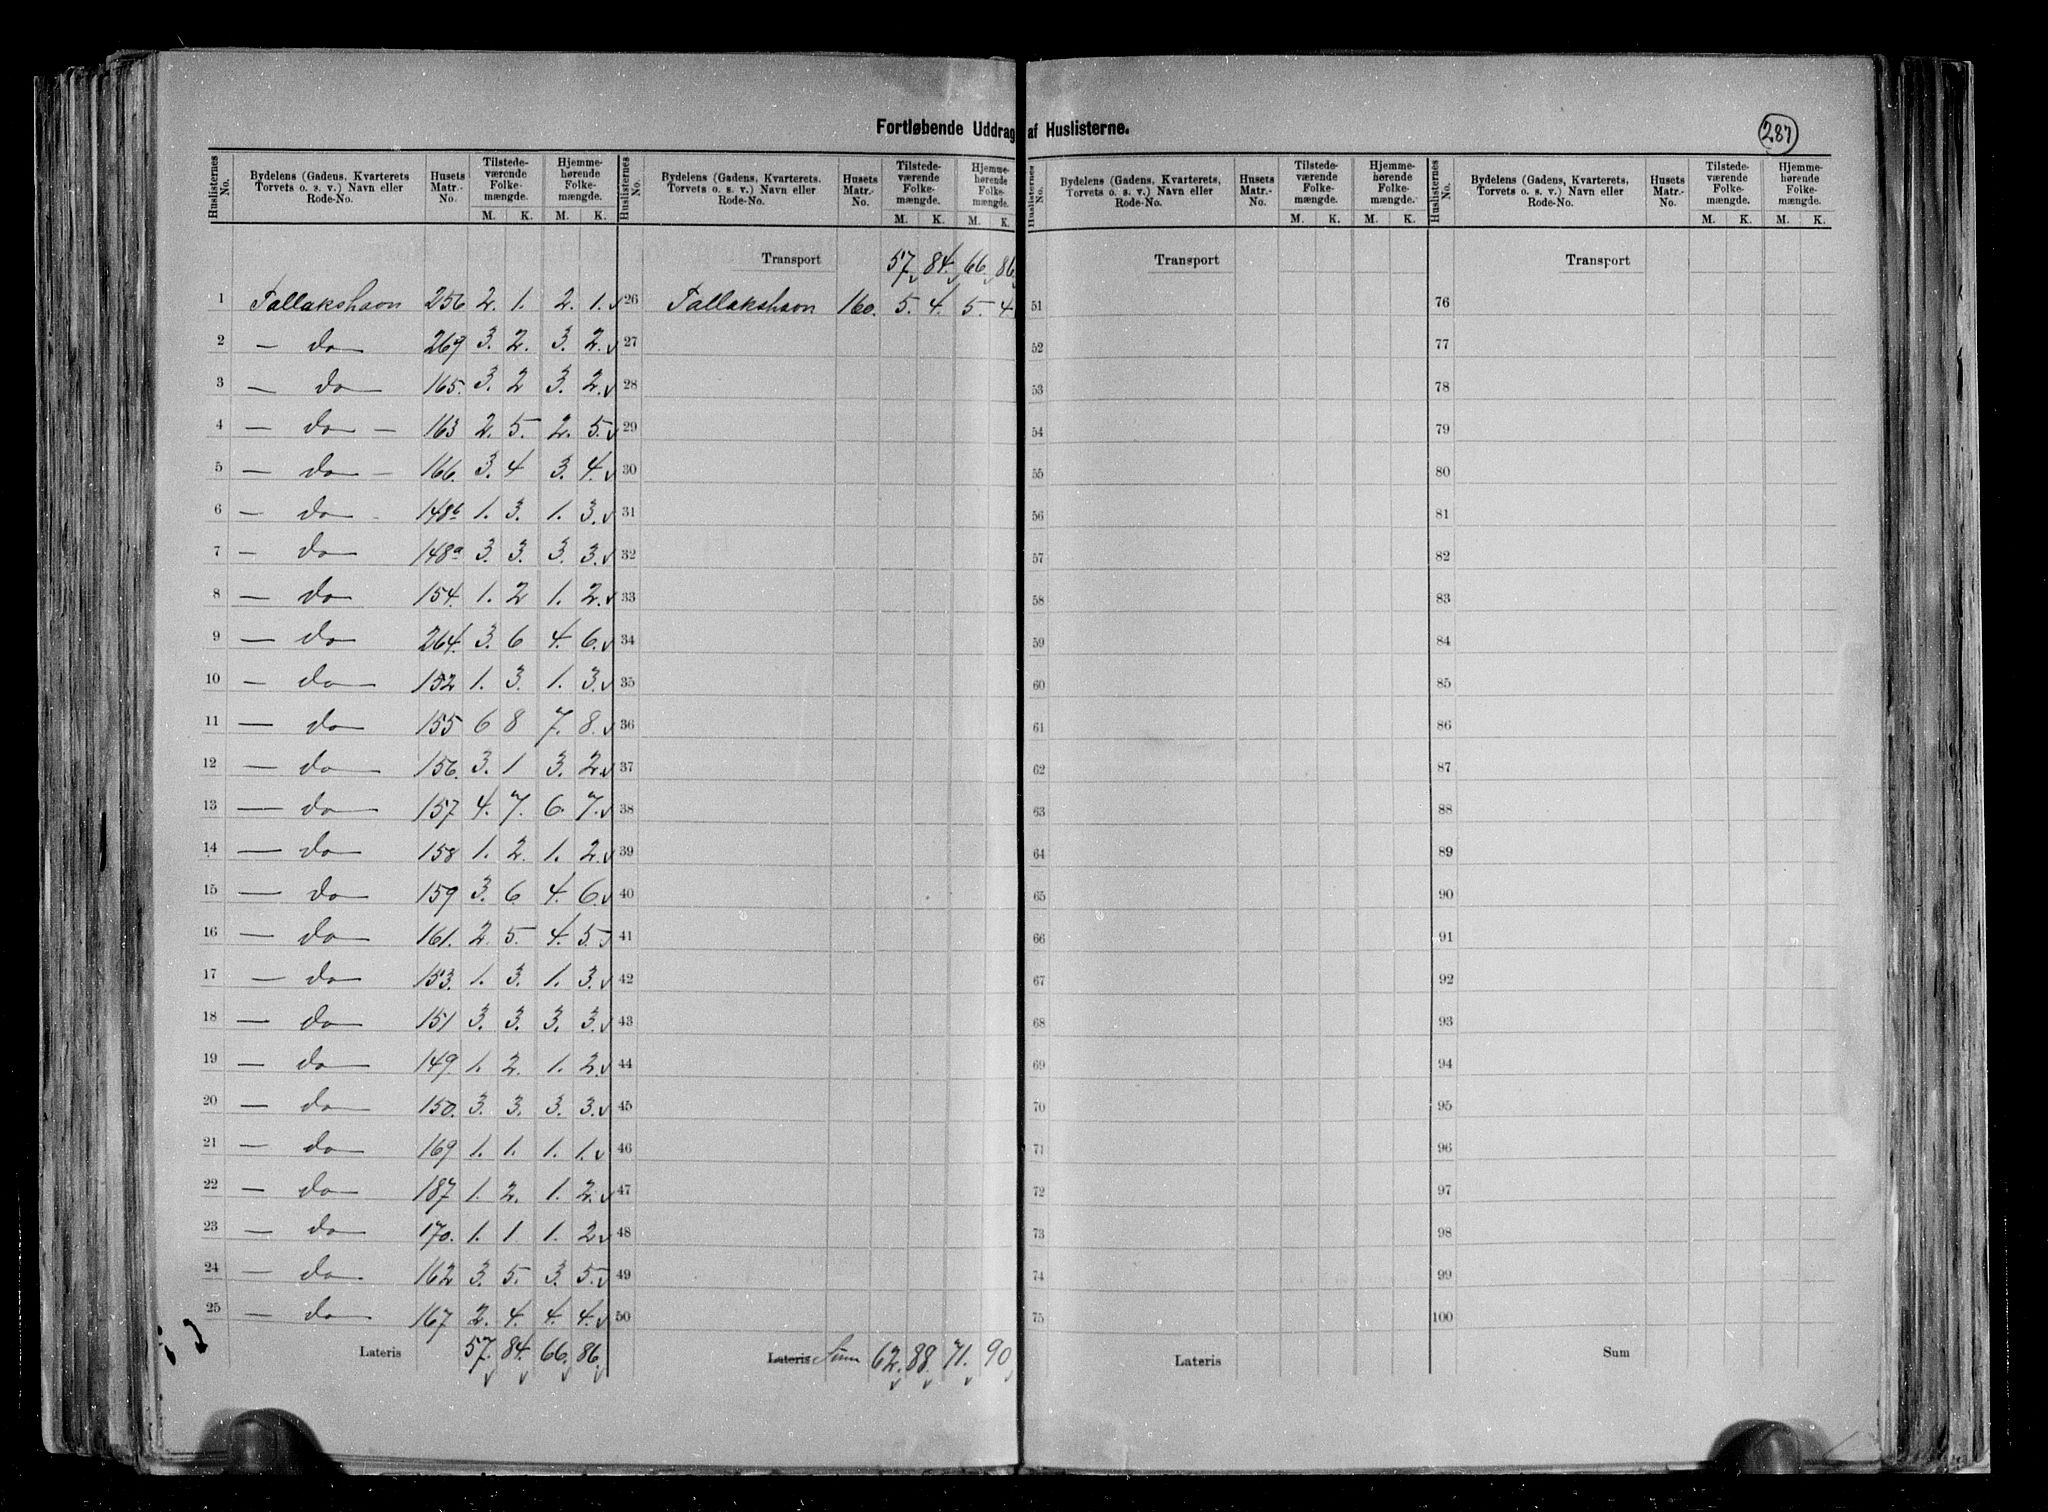 Fortløbende Uddrag af Huslisterne.
287
Huslisternes No. | Bydelens (Gadens, Kvarterets, Torvets o. s. v.) Navn eller Rode-No. | Husets Matr.-No. | Tilstedeværende Folkemængde. M. K. | Hjemmehørende Folkemængde. M. K.
1 Tallakshavn 256 2. 1. 2. 1. v
2 — do 269 3. 2. 3. 2. v
3 — do 165. 3. 2 3. 2. v
4 — do — 163 2. 5. 2. 5. v
5 — do — 166. 3. 4 3. 4. v
6 — do - 148b 1. 3. 1. 3. v
7 — do 148a 3. 3. 3. 3. v
8 — do 154. 1. 2 1. 2. v
9 — do 264. 3. 6 4. 6. v
10 — do 152 1. 3. 1. 3. v
11 — do 155 6 8 7. 8. v
12 — do 156. 3. 1 3. 2. v
13 — do 157 4. 7. 6. 7. v
14 — do 158 1. 2. 1. 2. v
15 — do 159 3. 6. 4. 6. v
16 — do 161. 2. 5. 4. 5. v
17 — do 153. 1. 3. 1. 3. v
18 — do 151 3. 3. 3. 3. v
19 — do 149. 1. 2. 1. 2. v
20 — do 150. 3. 3. 3. 3. v
21 — do 169 1. 1. 1. 1. v
22 — do 187 1. 2. 1. 2. v
23 — do 170. 1. 1 1. 2 v
24 — do 162 3. 5. 3. 5. v
25 — do 167 2. 4. 4. 4. v
Lateris 57. 84. 66. 86.
v v v v
Huslisternes No. | Bydelens (Gadens, Kvarterets, Torvets o. s. v.) Navn eller Rode-No. | Husets Matr.-No. | Tilstedeværende Folkemængde. M. K. | Hjemmehørende Folkemængde. M. K.
Transport 57. 84. 66. 86.
26 Tallakshavn 160. 5. 4. 5. 4
27
28
29
30
31
32
33
34
35
36
37
38
39
40
41
42
43
44
45
46
47
48
49
50
Lateris Sum 62. 88. 71. 90
v v v v
Huslisternes No. | Bydelens (Gadens, Kvarterets, Torvets o. s. v.) Navn eller Rode-No. | Husets Matr.-No. | Tilstedeværende Folkemængde. M. K. | Hjemmehørende Folkemængde. M. K.
Transport
51
52
53
54
55
56
57
58
59
60
61
62
63
64
65
66
67
68
69
70
71
72
73
74
75
Lateris
Huslisternes No. | Bydelens (Gadens, Kvarterets, Torvets o. s. v.) Navn eller Rode-No. | Husets Matr.-No. | Tilstedeværende Folkemængde. M. K. | Hjemmehørende Folkemængde. M. K.
Transport
76
77
78
79
80
81
82
83
84
85
86
87
88
89
90
91
92
93
94
95
96
97
98
99
100
Sum